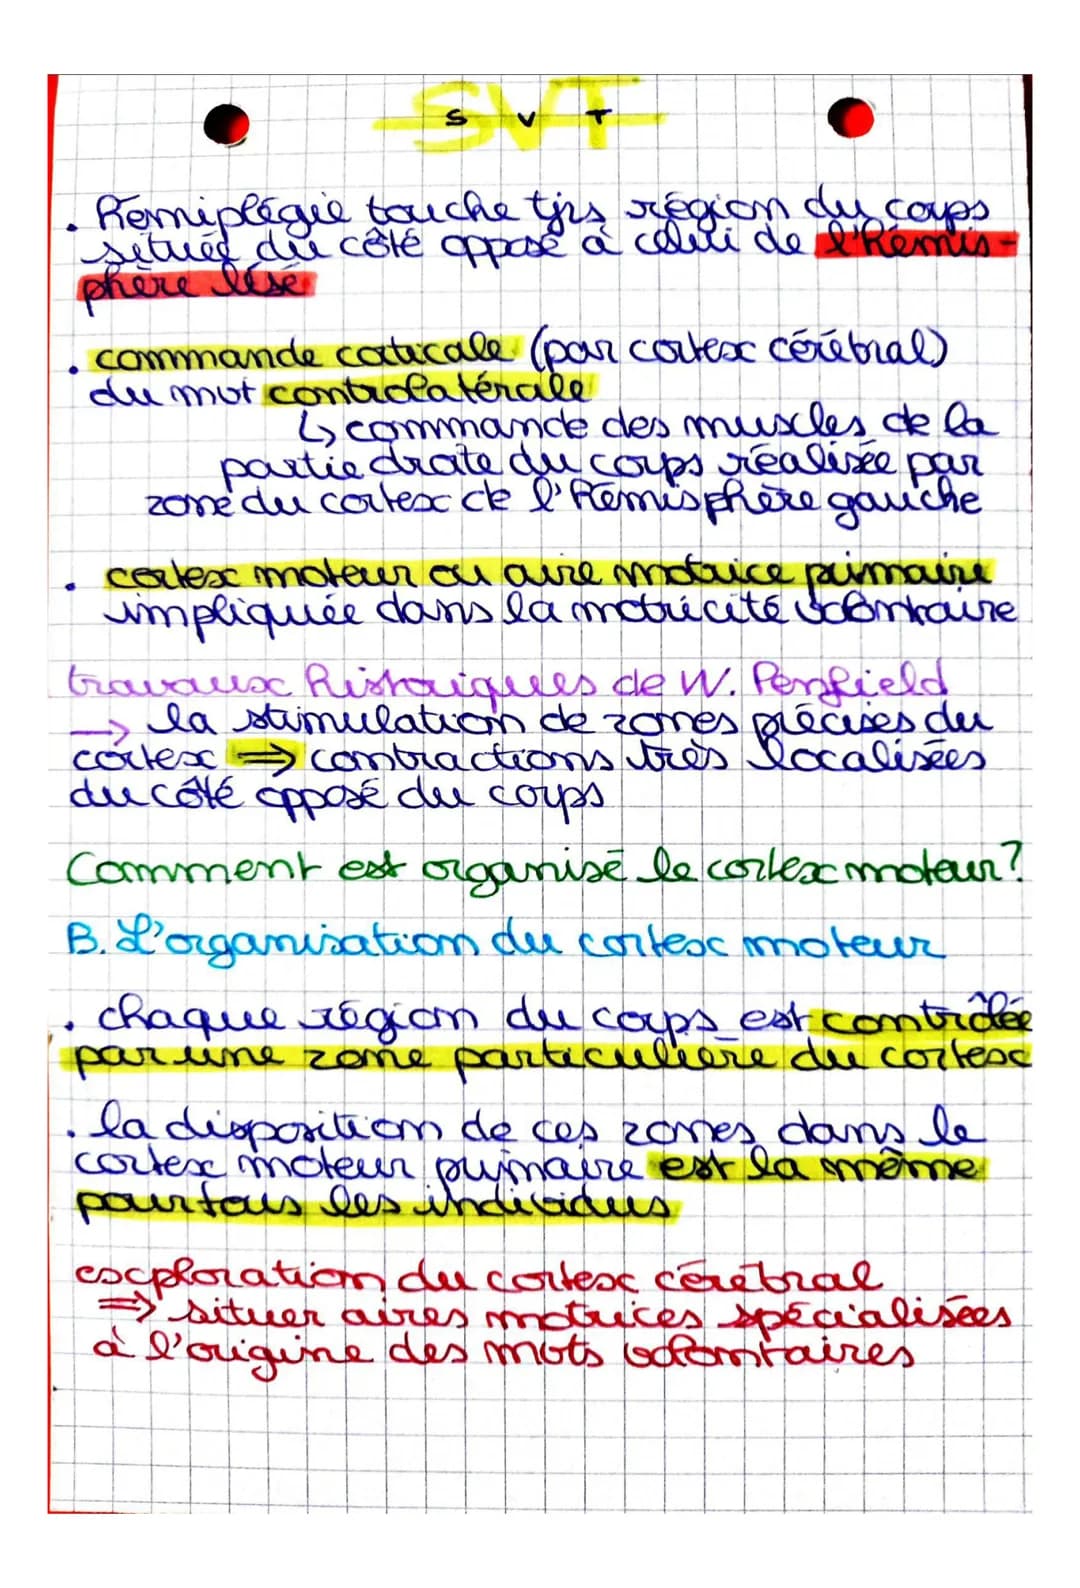 SVT
S V T
. hémiplégie touche tjrs région du corps
située du côté opposé à celui de l'hémis-
phère lésé
. commande corticale (par cortex cérébral)
du mvt controlatérale
↳ commande des muscles de la
partie droite du corps réalisée par
zone du cortex de l'hémisphère gauche
. cortex moteur ou aire motrice primaire
impliquée dans la motricité volontaire
travaux historiques de W. Penfield
→ la stimulation de zones précises du
cortex ⇒ contractions très localisées
du côté opposé du corps
Comment est organisé le cortex moteur?
B. L'organisation du cortex moteur
. chaque région du corps est contrôlée
par une zone particulière du cortex
. la disposition de ces zones dans le
cortex moteur primaire est la même
pour tous les individus
exploration du cortex cérébral
⇒ situer aires motrices spécialisées
à l'origine des mvts volontaires